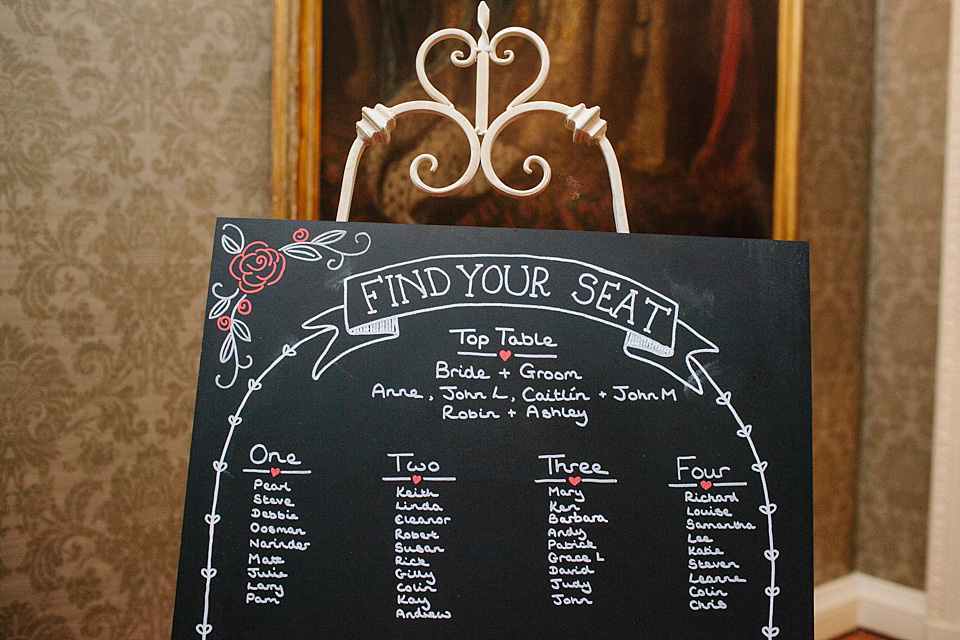 FIND YOUR SEAT
Top Table
Bride + Groom
Anne, John L, Caitlín + John M
Robin + Ashley
One
Pearl
Steve
Debbie
Oosman
Narinder
Matt
Julie
Larry
Pam
Two
Keith
Linda
Eleanor
Robert
Susan
Rick
Gilly
Colin
Kay
Andrew
Three
Mary
Ken
Barbara
Andy
Patrick
Grace L
David
Judy
John
Four
Richard
Louise
Samantha
Lee
Katie
Steven
Leanne
Colin
Chris